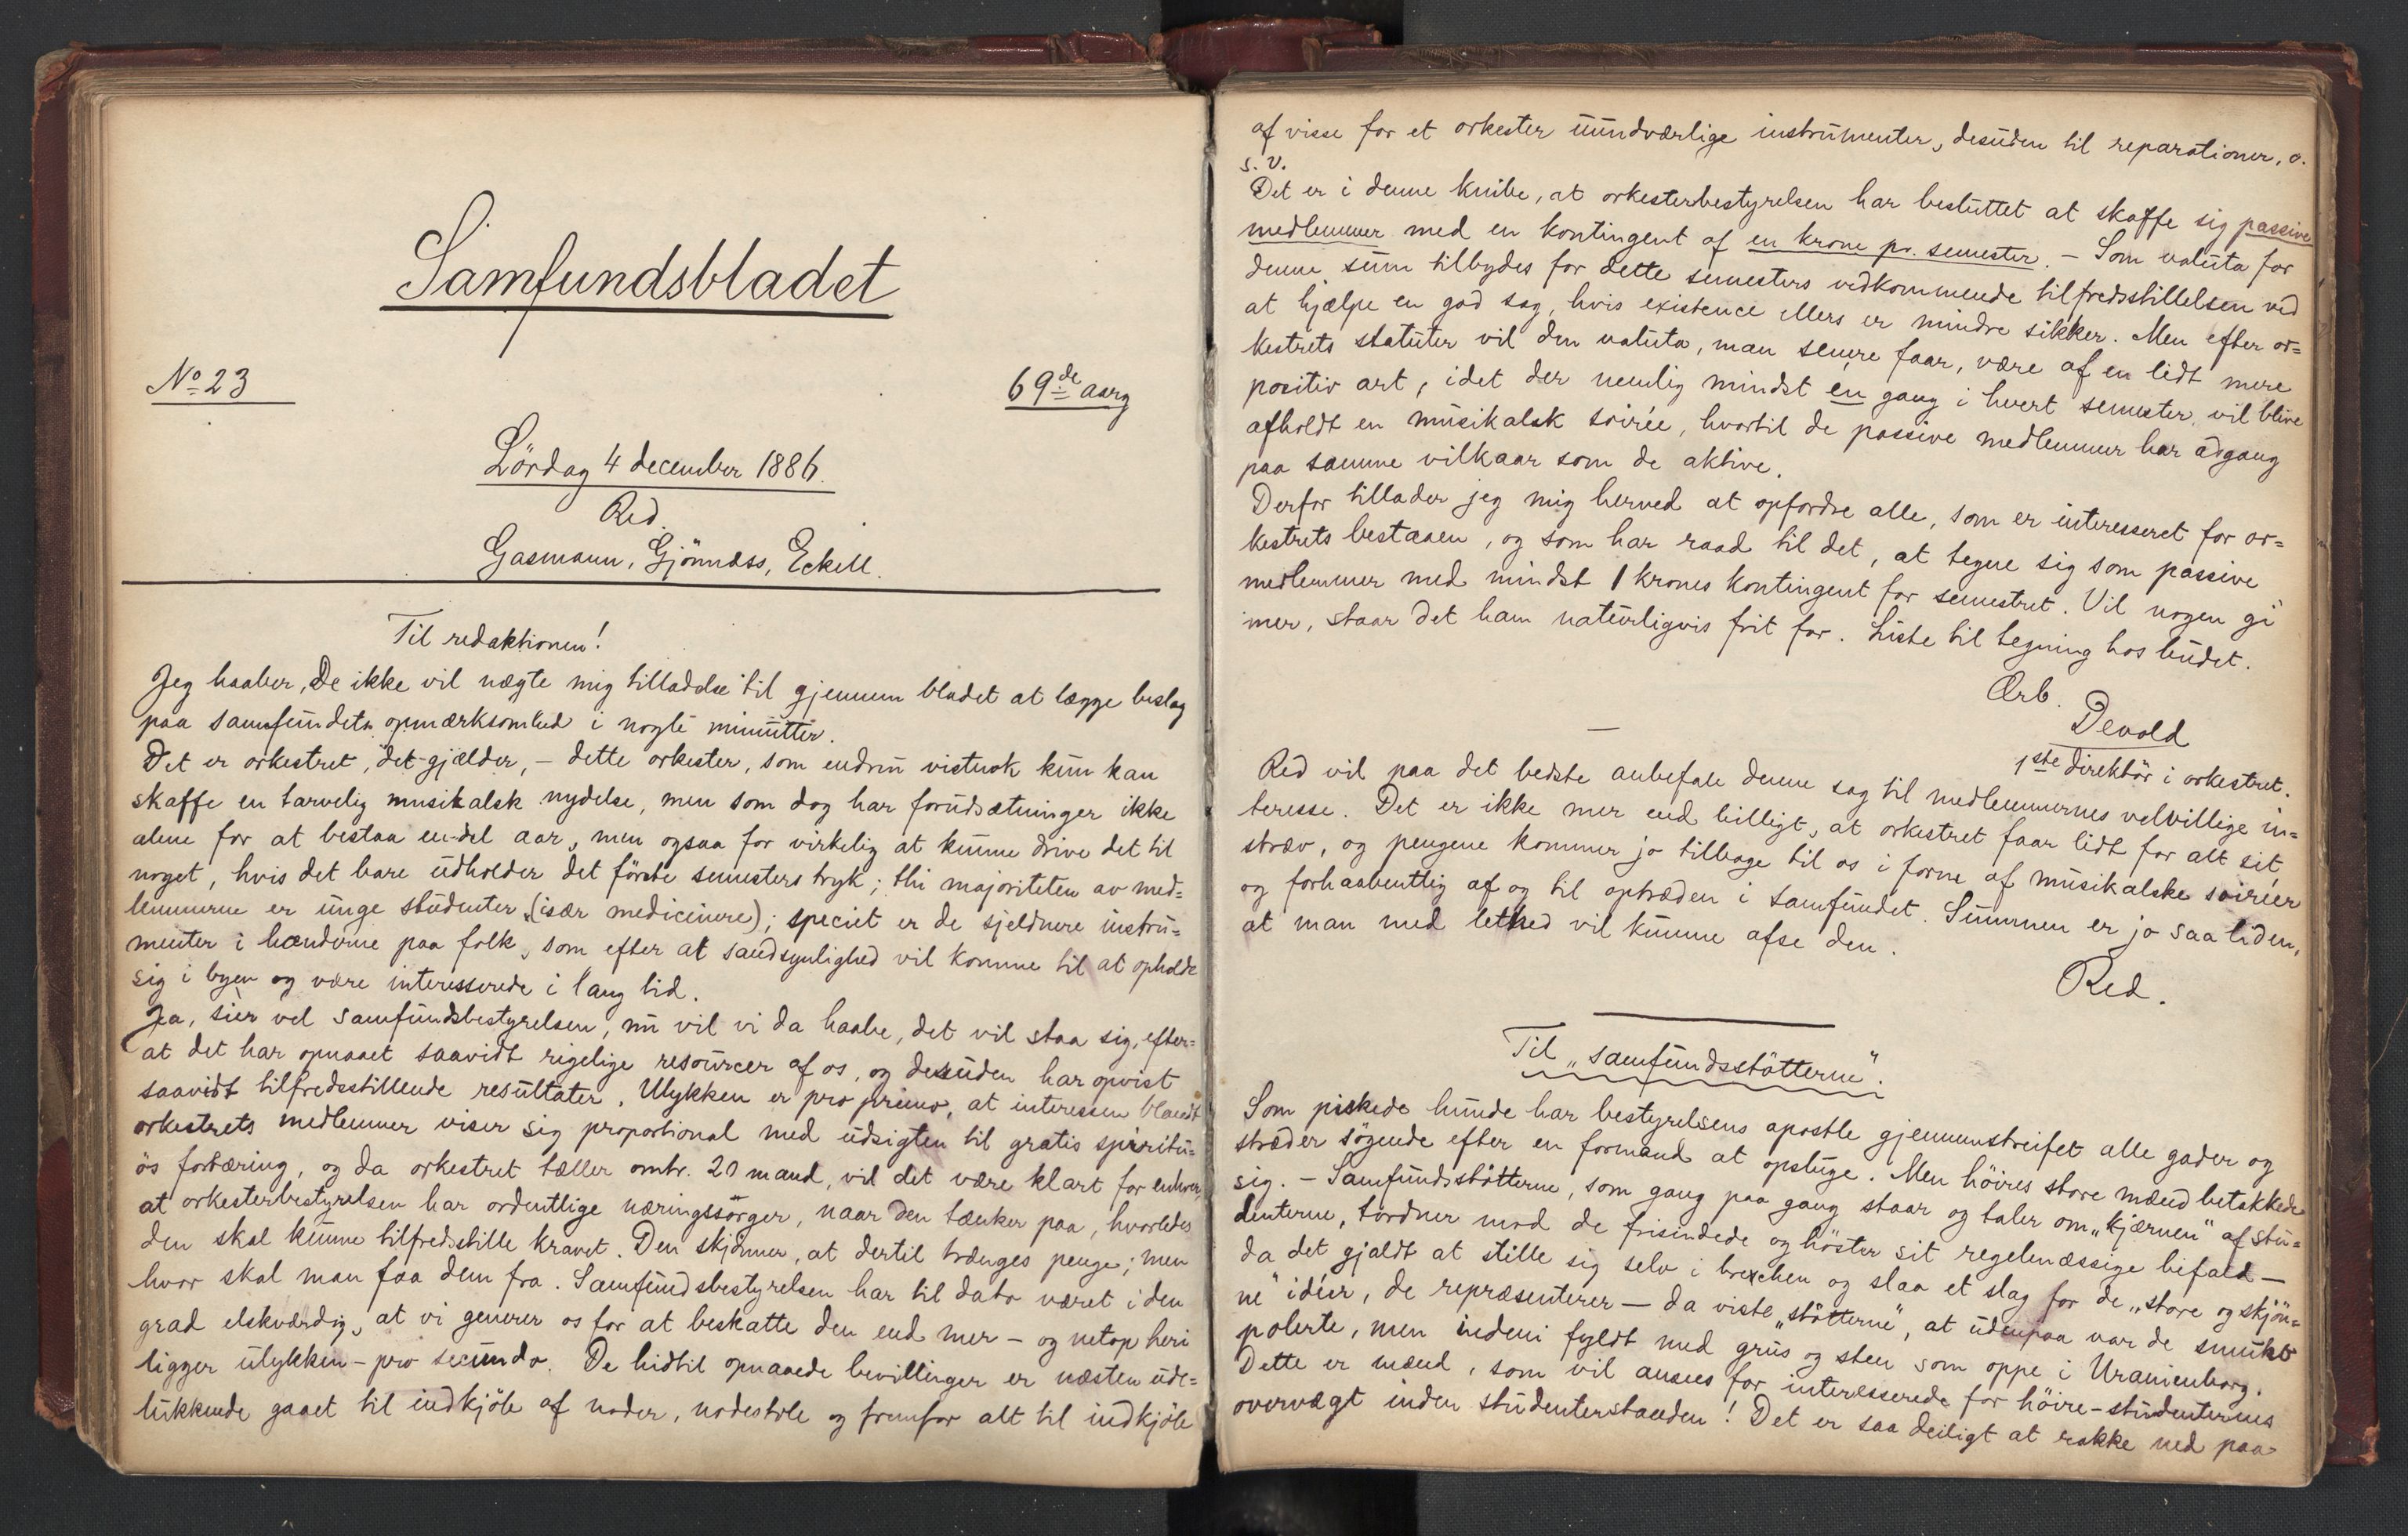 Samfundsbladet
No 23
69de aarg
Lördag 4 december 1886.
Red.
Gasmann, Gjönnæss, Eckell.
Til redaktionen!
Jeg haaber, De ikke vil nægte mig tilladelse til gjennem bladet at lægge beslag
paa samfundets opmærksomhed i nogle minutter.
Det er orkestret, det gjælder, – dette orkester, som endnu vistnok kun kan
skaffe en tarvelig musikalsk nydelse, men som dog har forudsætninger ikke
alene for at bestaa en del aar, men ogsaa for virkelig at kunne drive det til
noget, hvis det bare udholder det förste semesters tryk; thi majoriteten av med=
lemmerne er unge studenter (især medicinere); speciet er de sjeldnere instru=
menter i hænderne paa folk, som efter at sandsynlighed vil komme til at opholde
sig i byen og være interesserede i lang tid.
Ja, sier vel samfundsbestyrelsen, nu vil vi da haabe, det vil staa sig, efter=
at det har opnaaet saavidt rigelige resourcer af os, og desuden har opvist
saavidt tilfredsstillende resultater. Ulykken er pro primo, at interessen blandt
orkestrets medlemmer viser sig proportional med udsigten til gratis spiritu=
ös fortæring, og da orkestret tæller omtr. 20 mand, vil det være klart for enhver,
at orkesterbestyrelsen har ordentlige næringssörger, naar den tænker paa, hvorledes
den skal kunne tilfredsstille kravet. Den skjönner, at dertil trænges penge; men
hvor skal man faa dem fra. Samfundsbestyrelsen har til dato været i den
grad elskværdig, at vi generer os for at beskatte den end mer – og netop heri
ligger ulykken – pro secundo. De hidtil opnaaede bevillinger er næsten ude=
lukkende gaaet til indkjöb af noder, nodestole og fremfor alt til indkjöb
af visse for et orkester uundværlige instrumenter, desuden til reparationer, o.
s. v.
Det er i denne knibe, at orkesterbestyrelsen har besluttet at skaffe sig passive
medlemmer med en kontingent af en krone pr. semester. – Som valuta for
denne sum tilbydes for dette semesters vedkommende tilfredsstillelsen ved
at hjælpe en god sag, hvis existence ellers er mindre sikker. Men efter or=
kestrets statuter vil den valuta, man senere faar, være af en lidt mere
positiv art, idet der nemlig mindst en gang i hvert semester vil blive
afholdt en musikalsk soirée, hvortil de passive medlemmer har adgang
paa samme vilkaar som de aktive.
Derfor tillader jeg mig herved at opfordre alle, som er interesseret for or=
kestrets bestaaen, og som har raad til det, at tegne sig som passive
medlemmer med mindst 1 krones kontingent for semestret. Vil nogen gi
mer, staar det ham naturligvis frit for. Liste til tegning hos budet.
Ærb.
Devold
1ste direktör i orkestret.
Red vil paa det bedste anbefale denne sag til medlemmernes velvillige in=
teresse. Det er ikke mer end billigt, at orkestret faar lidt for alt sit
stræv, og pengene kommer jo tilbage til os i form af musikalske soiréer
og forhaabentlig af og til optræden i samfundet. Summen er jo saa liden,
at man med lethed vil kunne afse den.
Red.
Til "samfundsstötterne".
Som piskede hunde har bestyrelsens apostle gjennemstreifet alle gader og
stræder sögende efter en formand at opsluge. Men höires store mænd betakkede
sig. – Samfundsstötterne, som gang paa gang staar og taler om "kjærnen" af stu=
denterne, tordner mod de frisindede og höster sit regelmæssige bifald –
da det gjaldt at stille sig selv i brechen og slaa et slag for de "store og skjön=
ne" idéer, de repræsenterer – da viste "stötterne", at udenpaa var de smukt
polerte, men indeni fyldt med grus og sten som oppe i Uranienborg.
Dette er mænd, som vil ansees for interesserede for höire-studenternes
overvægt inden studenterstanden! Det er saa deiligt at rakke ned paa